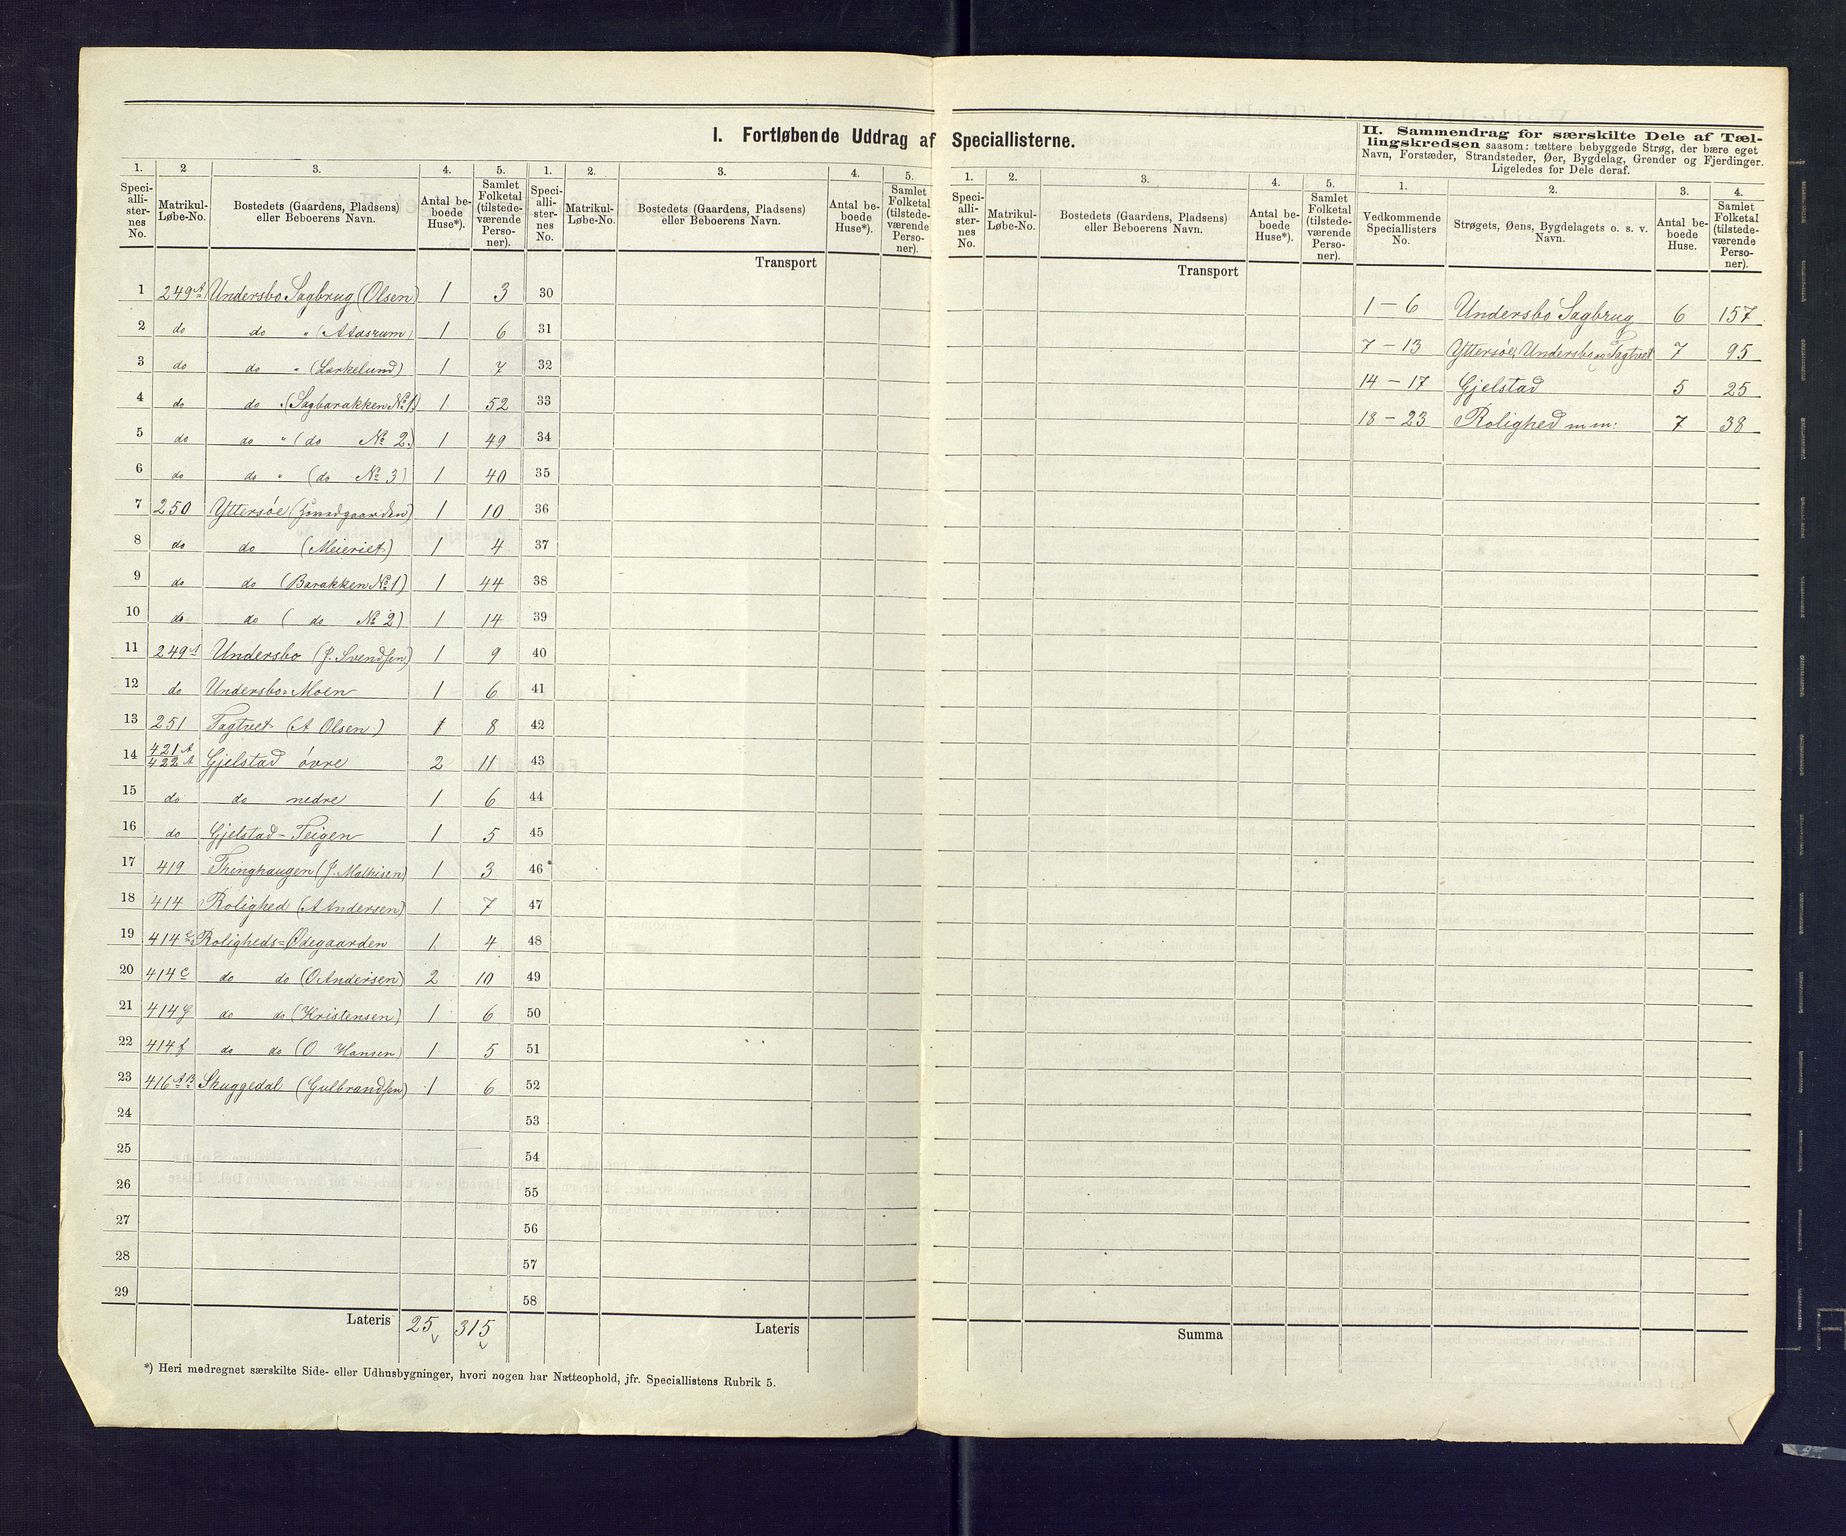 I. Fortløbende Uddrag af Speciallisterne.
II. Sammendrag for særskilte Dele af Tæl-
lingskredsen saasom: tættere bebyggede Strøg, der bære eget
Navn, Forstæder, Strandsteder, Øer, Bygdelag, Grender og Fjerdinger.
Ligeledes for Dele deraf.
1. 2 3. 4. 5.
Speci-alli-ster-nes No. Matrikul-Løbe-No. Bostedets (Gaardens, Pladsens) eller Beboerens Navn. Antal be-boede Huse*). Samlet Folketal (tilstede-værende Perso-ner).
1 249A Undersbo Sagbrug (Olsen) 1 3
2 do do " 1 6
3 do do " (Lerkelund) 1 7
4 do do " (Sagbarakken No 1) 1 52
5 do do " (do No 2.) 1 49
6 do do " (do No 3) 1 40
7 250 Yttersøe 1 10
8 do do (Meieriet) 1 4
9 do do (Barakken No 1) 1 44
10 do do ( do No 2) 1 14
11 249A Undersbo (J. Svendsen) 1 9
12 do Undersbo-Moen 1 6
13 251 Fagtvet (A Olsen.) 1 8
14 421A 422A Gjelstad övre 2 11
15 do do nedre 1 6
16 do Gjelstad-Teigen 1 5
17 419 Thinghaugen (J. Mathisen) 1 3
18 414 Rolighed (A Andersen) 1 7
19 414 Roligheds=Ødegaarden 1 4
20 414c do do (O Andersen) 2 10
21 414 do do (Kristensen) 1 6
22 414f do do (O Hansen) 1 5
23 416AB Skuggedal (Gulbrandsen) 1 6
24
25
26
27
28
29
Lateris 25 315
*) Heri medregnet særskilte Side- eller Udhusbygninger, hvori nogen har Natteophold, jfr. Speciallistens Rubrik 5.
1. 2. 3. 4. 5.
Speci-alli-ster-nes No. Matrikul-Løbe-No. Bostedets (Gaardens, Pladsens) eller Beboerens Navn. Antal be-boede Huse*). Samlet Folketal (tilstede-værende Perso-ner).
Transport
30
31
32
33
34
35
36
37
38
39
40
41
42
43
44
45
46
47
48
49
50
51
52
53
54
55
56
57
58
Lateris
1. 2. 3. 4. 5.
Speci-alli-ster-nes No. Matrikul-Løbe-No. Bostedets (Gaardens, Pladsens) eller Beboerens Navn. Antal be-boede Huse*). Samlet Folketal (tilstede-værende Perso-ner).
Transport
Summa
1. 2. 3. 4.
Vedkommende Speciallisters No. Strøgets, Øens, Bygdelagets o. s. v. Navn. Antal be-boede Huse. Samlet Folketal (tilstede-værende Perso-ner).
1 - 6 Undersbo Sagbrug 6 157
7 - 13 Yttersøe, Undersbo og Fagtvet 7 95
14 - 17 Gjelstad 5 25
18 - 23 Rolighed m m: 7 38